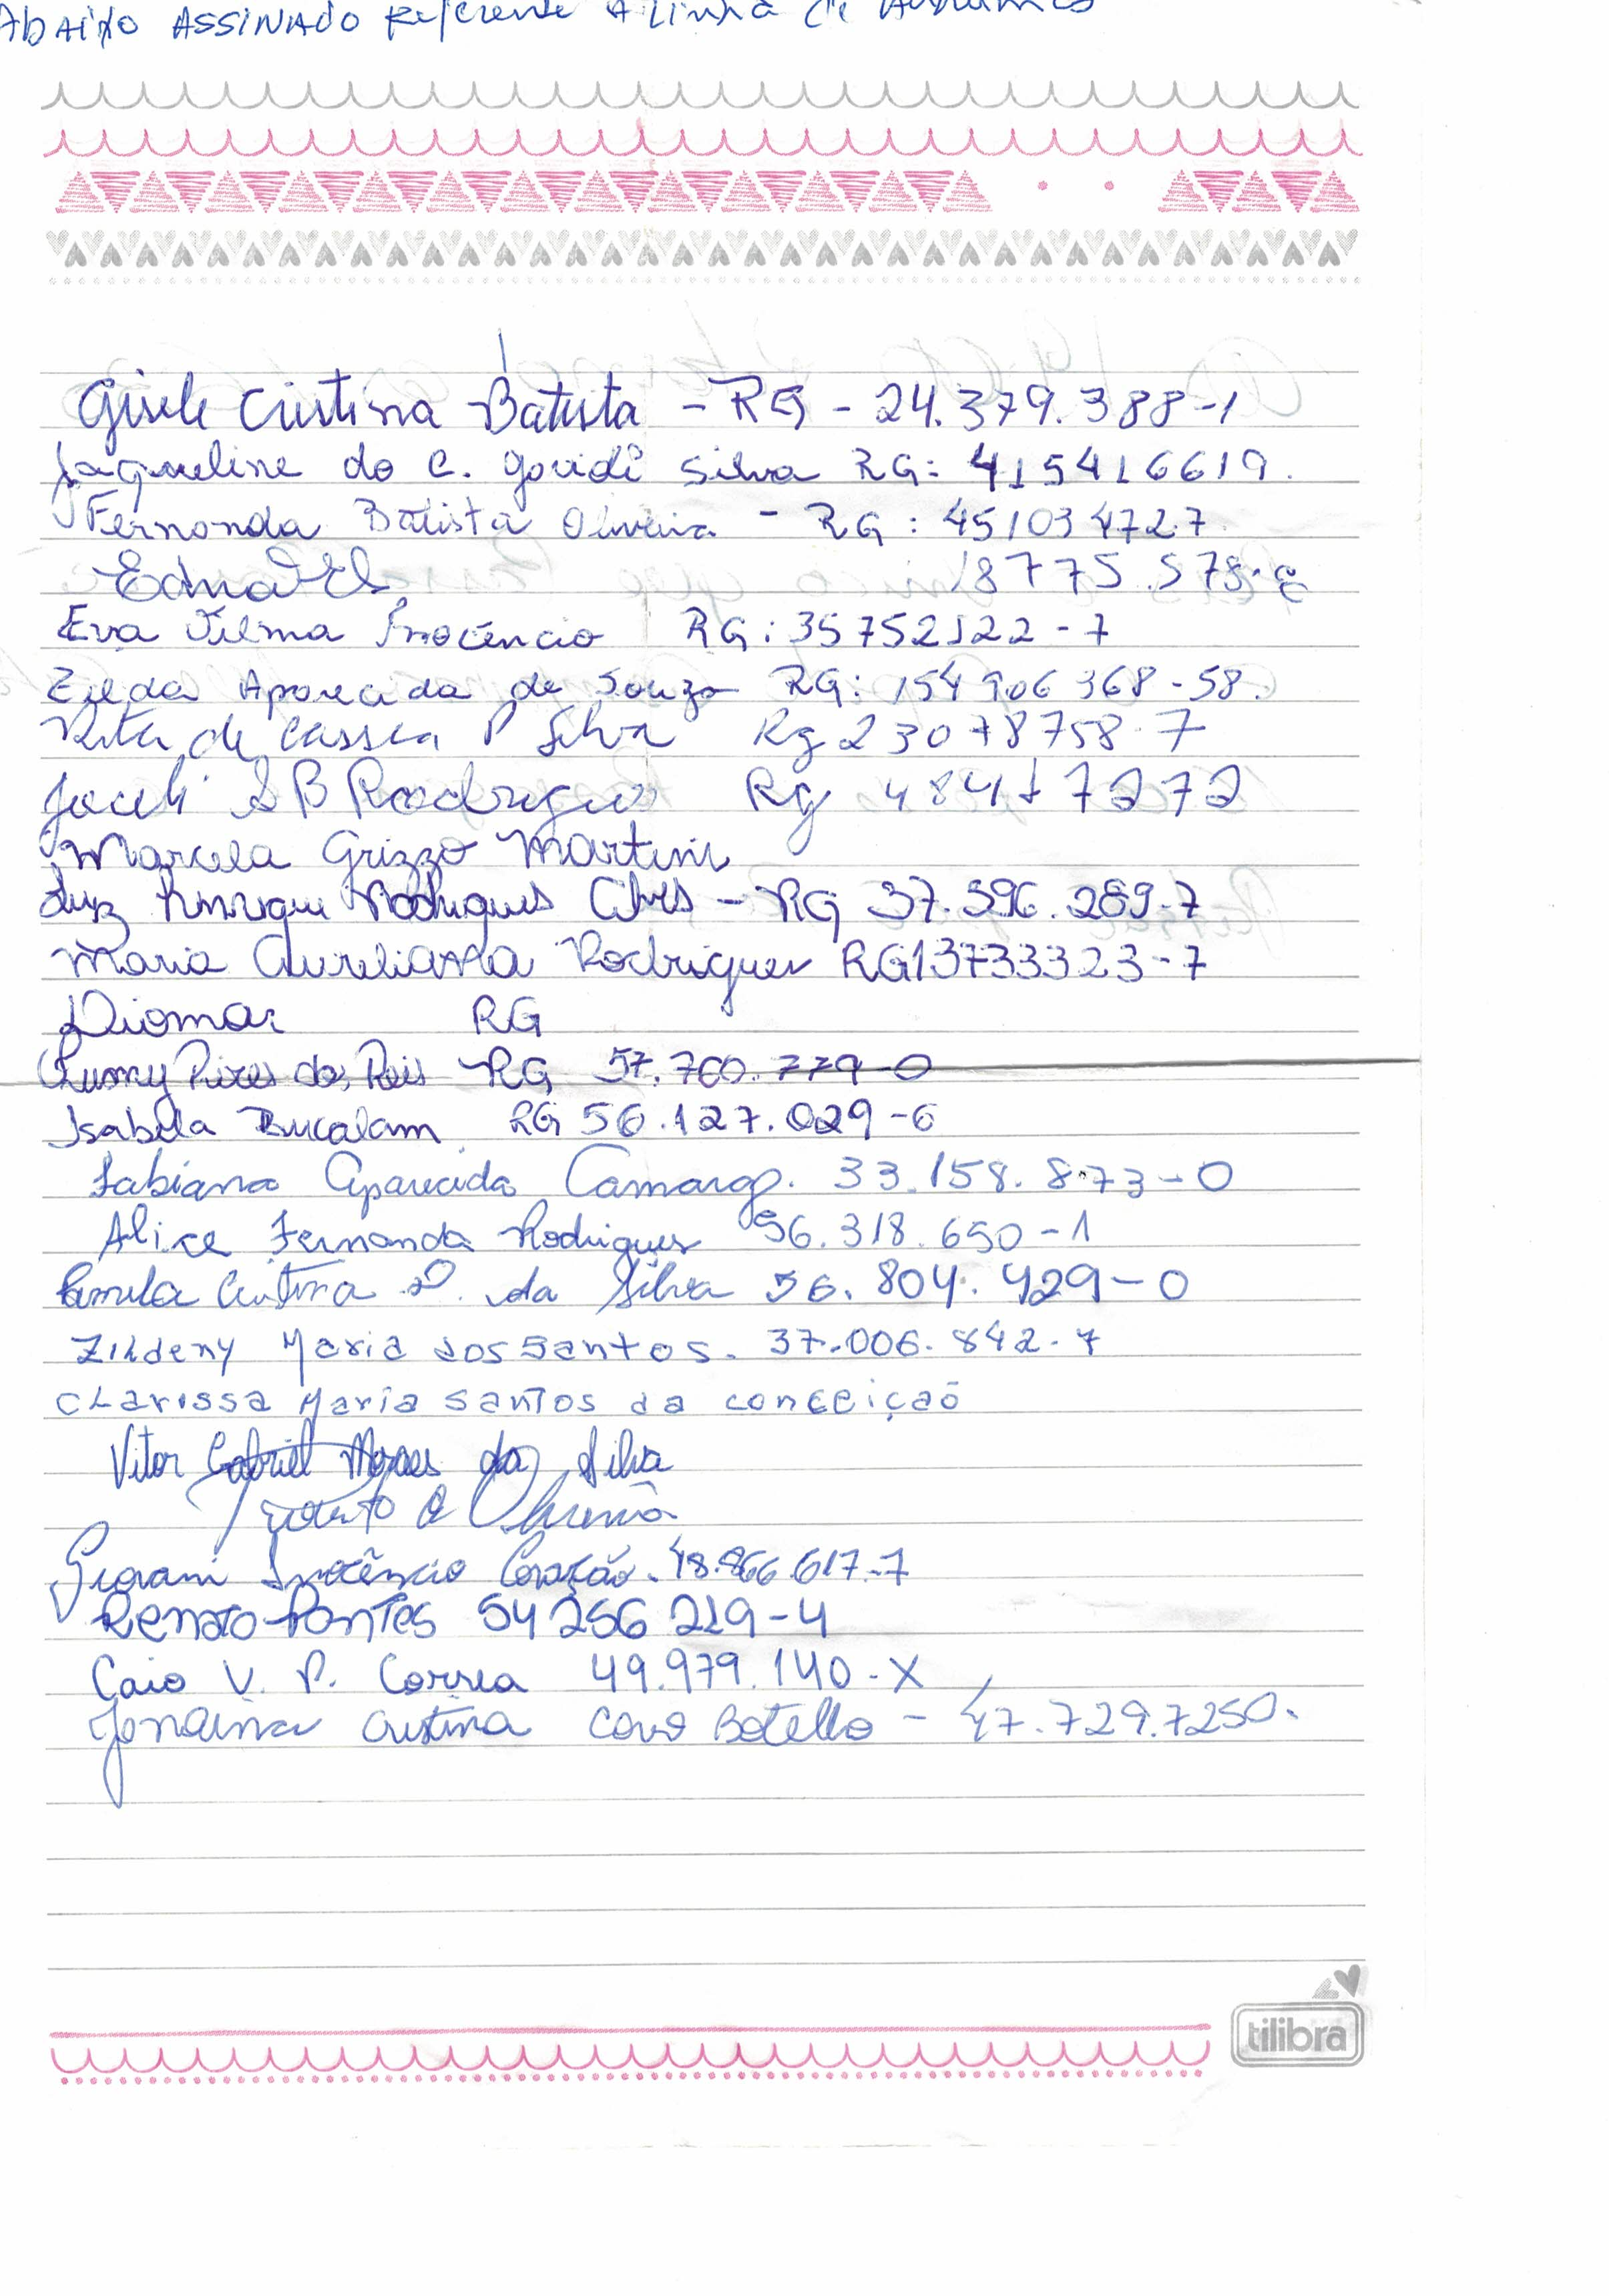 Abaixo ASSINADO Referente A Linha de
Gisele Cristina Batista - RG - 24.379.388-1
Jaqueline do C. Silva RG: 415416619.
Fernanda Batista Oliveira - RG: 451034727
Edna 18775.578-
Eva Vilma Inocêncio RG: 35752122-7
Zilda Aparecida de Souza RG: 154906368-58.
Rita de Cassia P Silva Rg 23078758-7
Joceli S B Rodrigues Rg 484177272
Marcela Grizzo Martins
Luiz Henrique Rodrigues Alves - RG 37.396.289-7
Maria Aureliana Rodrigues RG13733323-7
Diomar RG
Pires dos Reis RG 57.760.779-0
Isabela Bucalam RG 56.127.029-6
Fabiana Aparecida Camargo. 33.158.873-0
Alice Fernanda Rodrigues 56.318.650-1
Pamela Cristina P. da Silva 56.804.429-0
Zildeny Maria dos Santos. 37.006.842-7
Clarissa Maria Santos da Conceição
Vitor Gabriel Moraes da Silva
Oliveira
Giovani Inocêncio 48.866.617-7
Renato Pontes 54 256 219-4
Caio V. P. Correa 49.979.140-X
Janaina Cristina Botelho - 47.729.7250.
tilibra